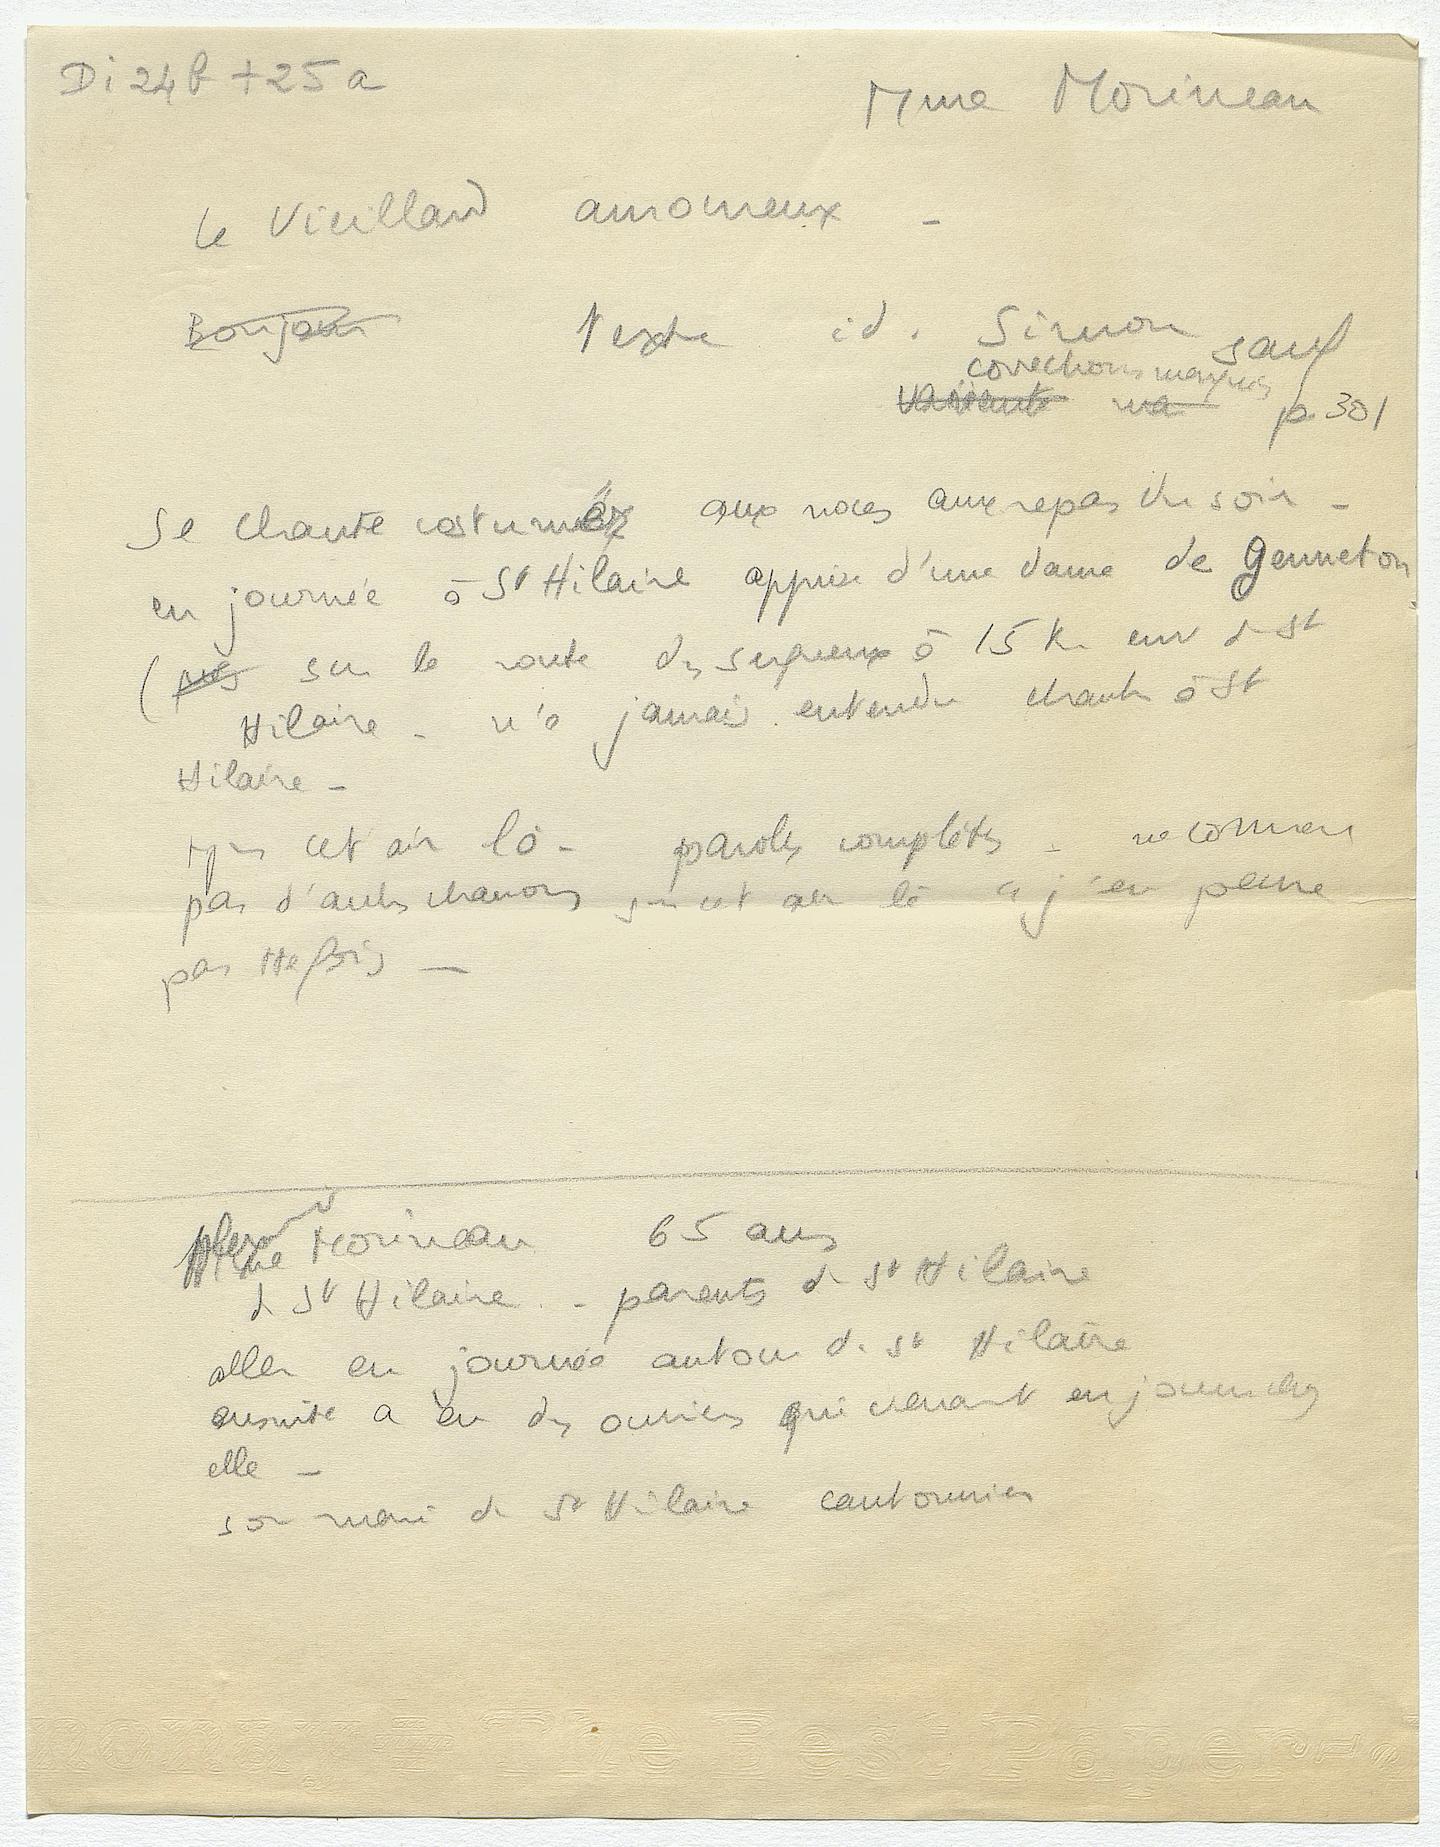 Di 24 b + 25 a
Mme Morineau
Le Vieillard amoureux -
Bonjour Texte id. Simon sauf
corrections marquées
variante ma p 301
Se chante costumé aux noces aux repas du soir -
en journée à St Hilaire apprise d'une dame de Genneton
( sur la route des à 15 K. env de St
Hilaire - n'a jamais entendu chanter à St
Hilaire -
cet air là - paroles complètes - ne connait
pas d'autres chansons sur cet air là
pas
Mme Morineau 65 ans
de St Hilaire - parents de St Hilaire
aller en journée autour de St Hilaire
ensuite a eu des ouvriers qui venaient en journée chez
elle -
son mari de St Hilaire cantonnier
The Best Paper